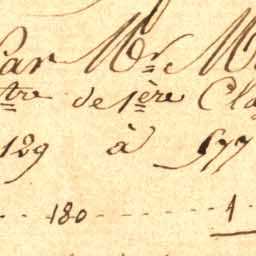 Par Mr. M
tre de 1ère Cla
129 à 577
180 1